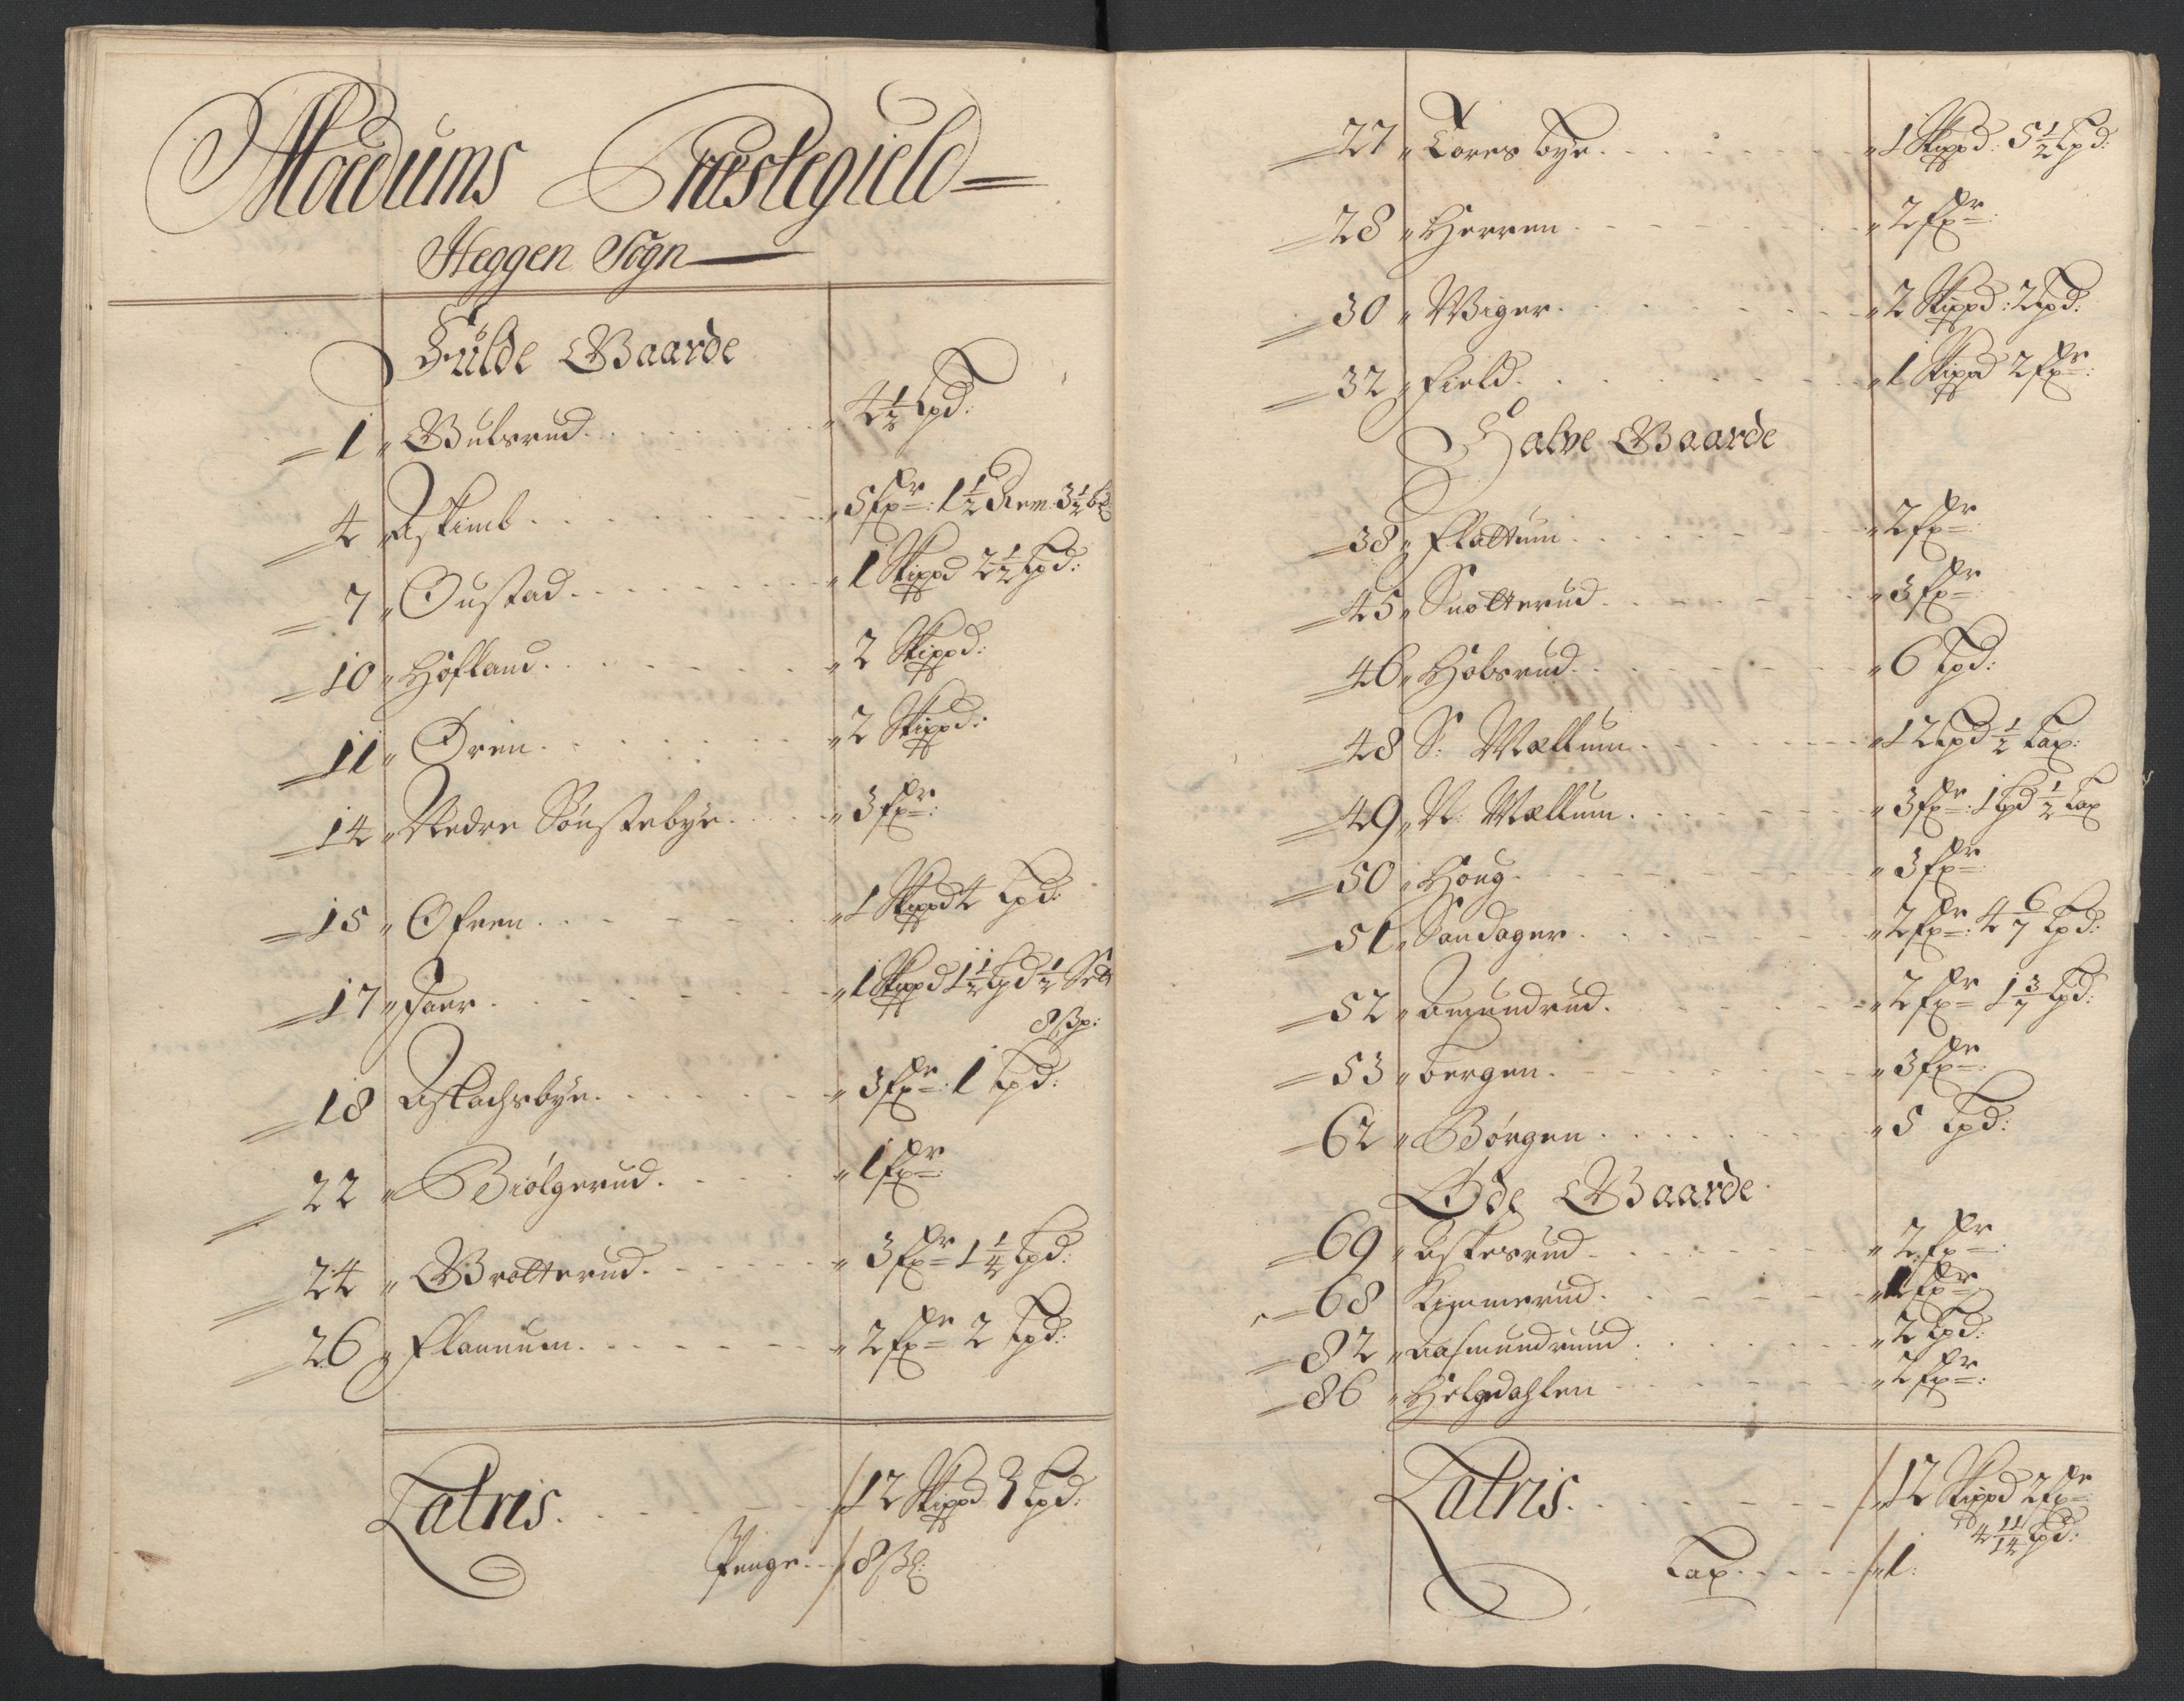 Moedums Præstegield
Heggen Sogn
Fulde Gaarde
1 Gulsrud. 4½ Lpd:
4 Askimb. 5 fpr: 1½ Rem. 3½ bl
7 Oustad. 1 Skippd 2½ Lpd:
10 Hofland. 2 Skippd:
11 Dren. 2 Skippd:
14 Nedre Sønstebye. 3 fpr:
15 Ofren. 1 Skippd 4 Lpd:
17 Foer. 1 Skippd 1½ Lpd ½ Sett
8 ß p:
18 Aslachsbye. 3 fpr: 1 Lpd:
22 Biølgerud. 1 fpr:
24 Grotterud. 3 fpr 1¼ Lpd:
26 Flannum. 2 fpr 2 Lpd:
Latris. 12 Skippd 3 Lpd:
Penge. 8 ß:
27 Toresbye. 1 Skippd: 5½ Lpd:
28 Herren 2 fpr:
30 Wiger. 2 Skippd: 2 Lpd:
32 Field. 1 Skippd 2 fpr:
Halve Gaarde
38 Flattum. 2 fpr:
45 Snotterud. 3 fpr:
46 Hobsrud. 6 Lpd:
48 S: Mællum. 12 Lpd ½ Lax:
49 N: Mællum. 3 fpr: 1 Lpd ½ Lax
50 Houg. 3 fpr:
51 Sandager. 2 fpr: 4 6/7 Lpd:
52 Amundrud. 2 fpr 1 3/7 Lpd:
53 Bergen. 3 fpr:
62 Børgen. 5 Lpd:
Øde Gaarde
69 Askesrud. 2 fpr:
68 Kimmerud. 1 fpr
82 Aasmundruud. 2 Lpd:
86 Helgedahlen 2 fpr:
Latris. 12 Skippd 2 fpr
4 11/14 Lpd:
Lax. 1: